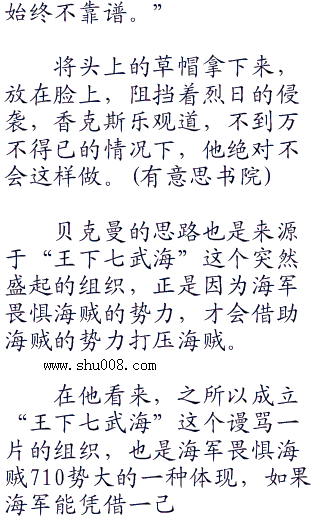 始终不靠谱。”
将头上的草帽拿下来，
放在脸上，阻挡着烈日的侵
袭，香克斯乐观道，不到万
不得已的情况下，他绝对不
会这样做。(有意思书院)
贝克曼的思路也是来源
于“王下七武海”这个突然
盛起的组织，正是因为海军
畏惧海贼的势力，才会借助
海贼的势力打压海贼。
www.shu008.com
在他看来，之所以成立
“王下七武海”这个谩骂一
片的组织，也是海军畏惧海
贼710势大的一种体现，如果
海军能凭借一己